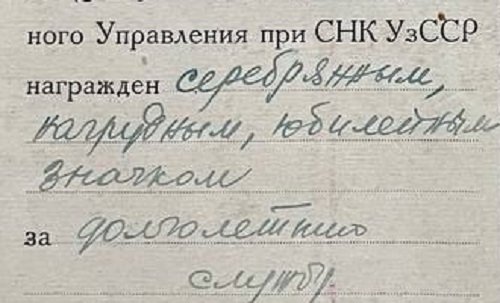 ного Управления при СНК УзССР
награжден серебряным,
нагрудным, юбилейным
значком
за долголетнюю
службу.